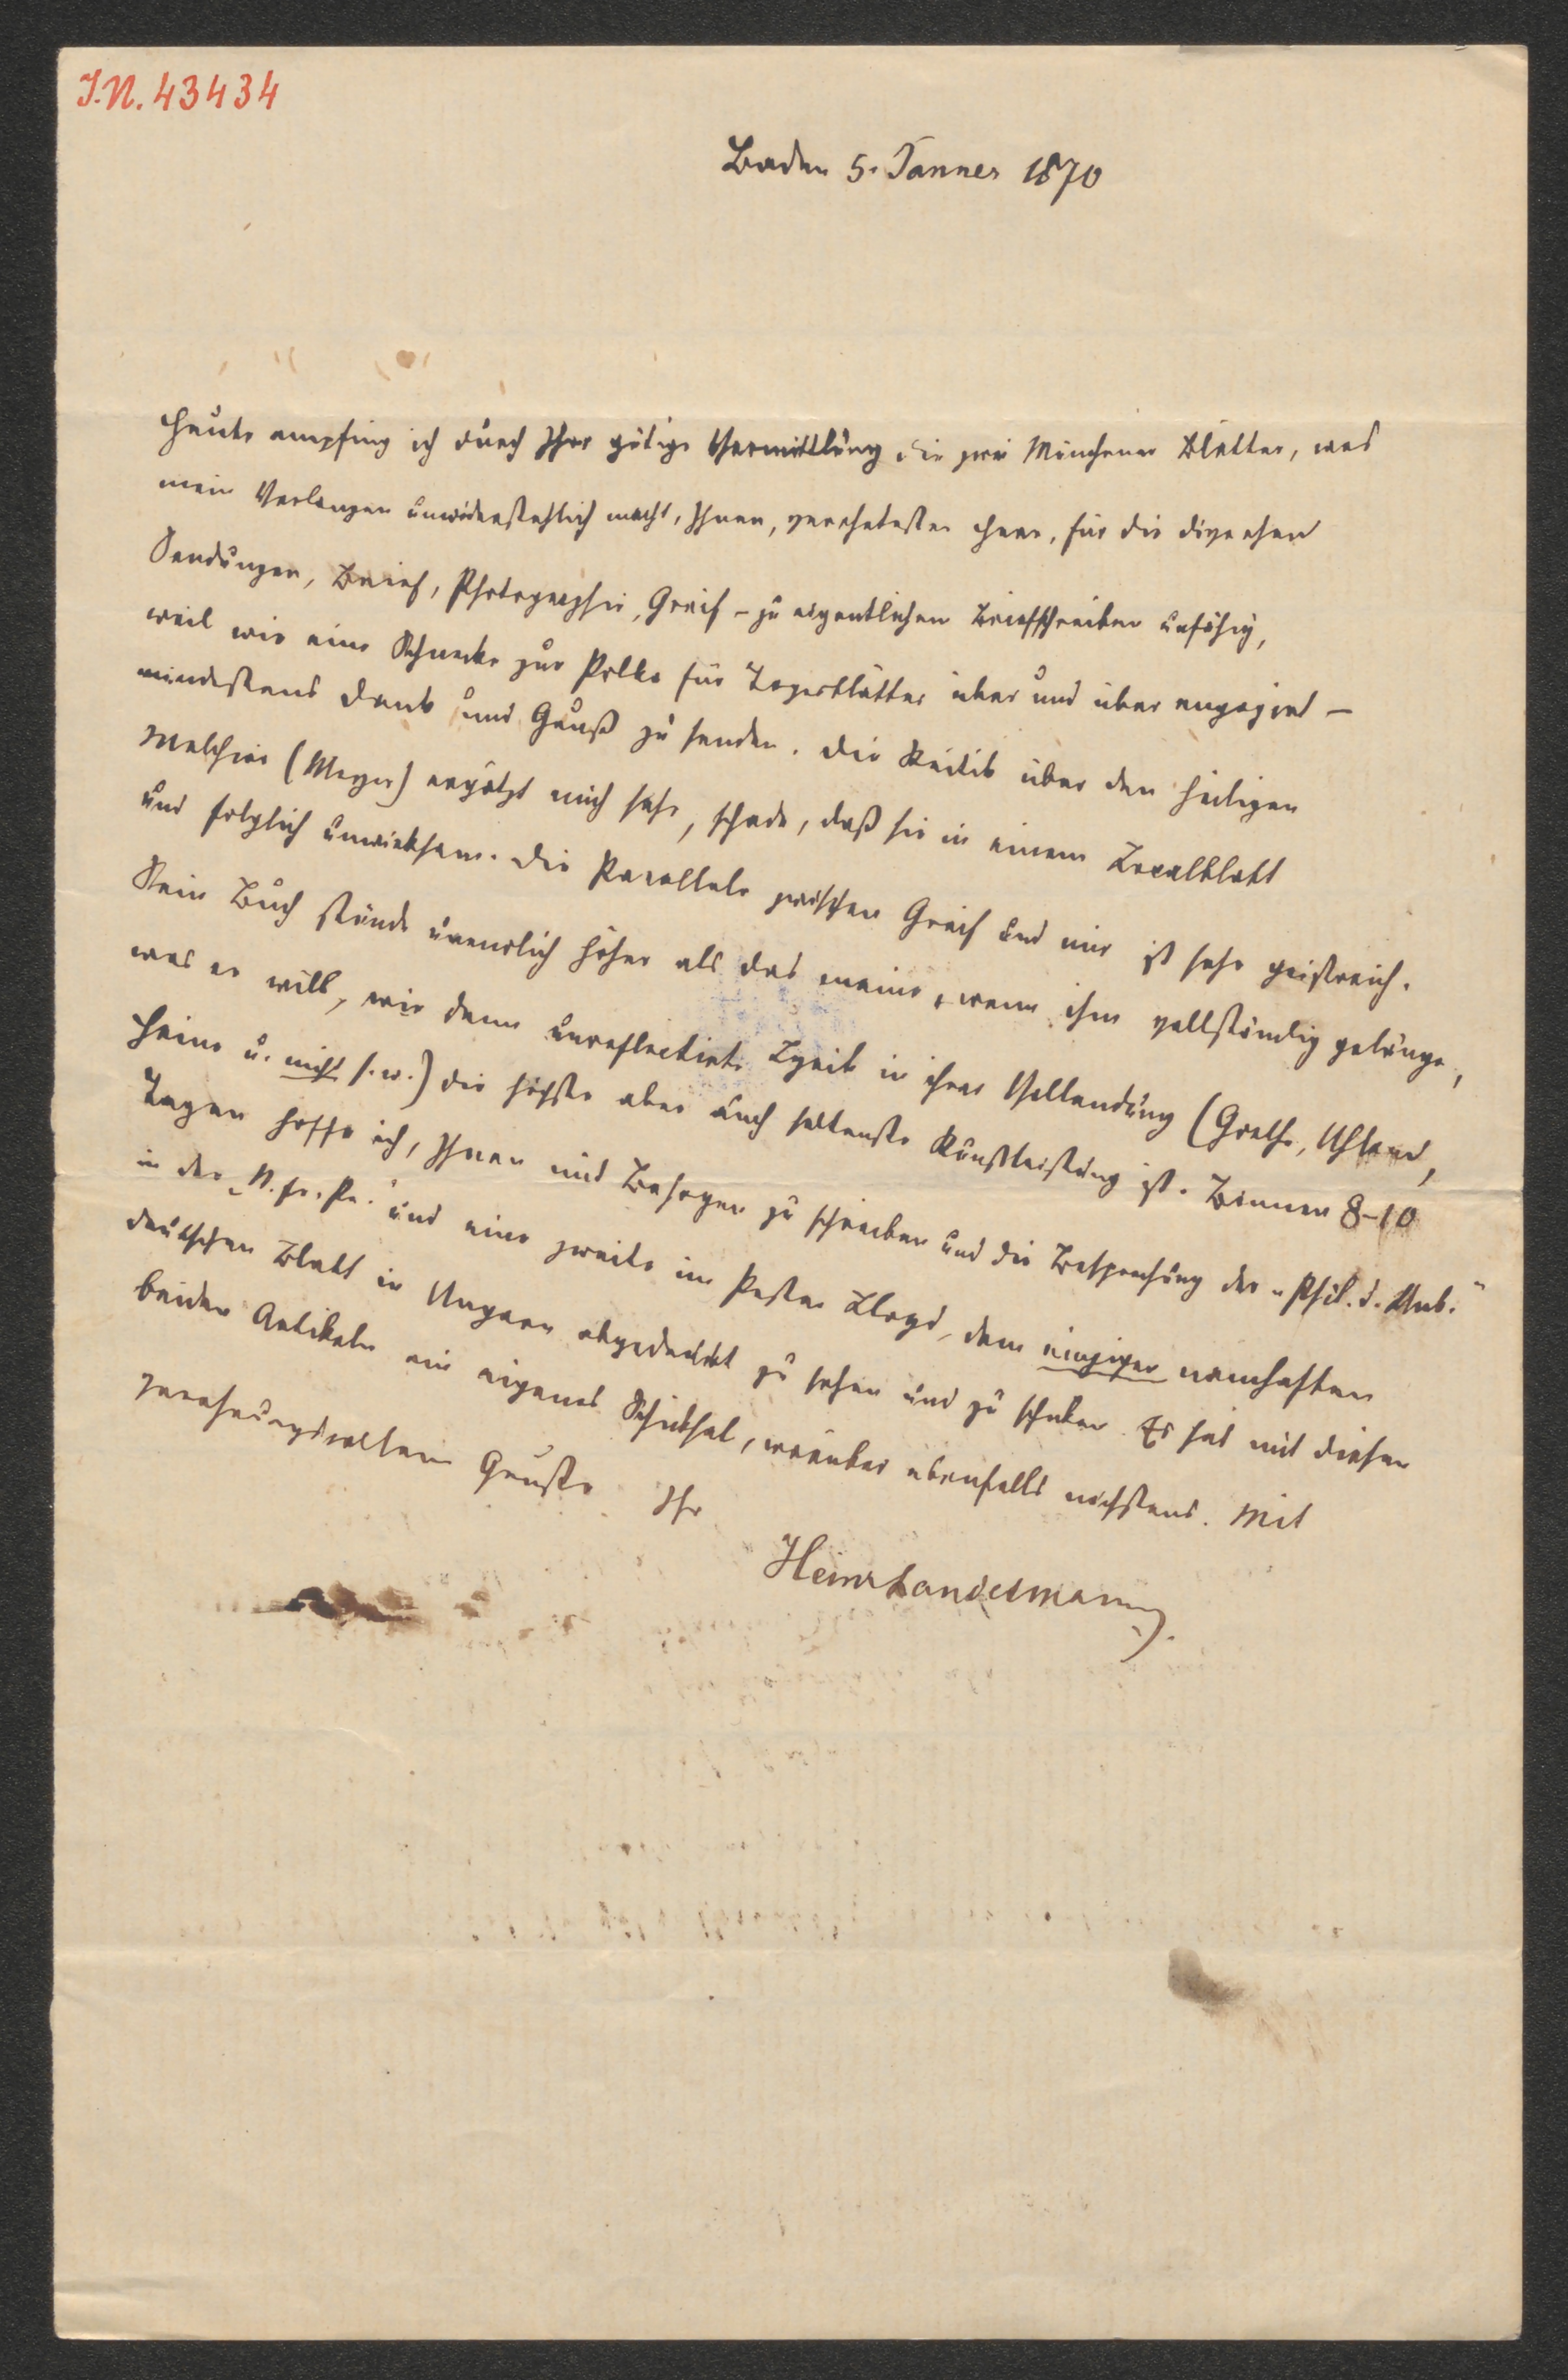 I.N. 43434
Baden 5. Jänner 1870
Heute empfing ich durch Ihre gütige Vermittlung die zwei Münchener Blätter, was
mein Verlangen unwiderstehlich macht, Ihnen, verehrtester Herr, für die diversen
Sendungen, Brief, Photographie, Greif – zu eigentlichem Briefschreiben unfähig,
weil wie eine Schnecke zur Polka für Tagesblätter über und über engagirt –
mindestens Dank und Gruß zu senden. Die Kritik über den heiligen
Melchior (Meyr) ergötzt mich sehr, schade, daß sie in einem Localblatt
und folglich unwirksam. Die Parallele zwischen Greif und mir ist sehr geistreich.
Sein Buch stünde unendlich höher als das meine, wenn ihm vollständig gelänge,
was er will, wie denn unreflectirte Lyrik in ihrer Vollendung (Goethe, Uhland,
Heine u. nicht s. w.) die höchste aber auch seltenste Kunstleistung ist. Binnen 8–10
Tagen hoffe ich, Ihnen mit Behagen zu schreiben und die Besprechung der „Phil. d. Unb."
in der „N. fr. Pr." und eine zweite im Pester Lloyd, dem einzigen namhaften
deutschen Blatt in Ungarn abgedruckt zu sehen und zu schicken. Es hat mit diesen
beiden Artikeln ein eigenes Schicksal, worüber ebenfalls nächstens. Mit
verehrungsvollem Gruße Ihr
Heinr Landesmann.